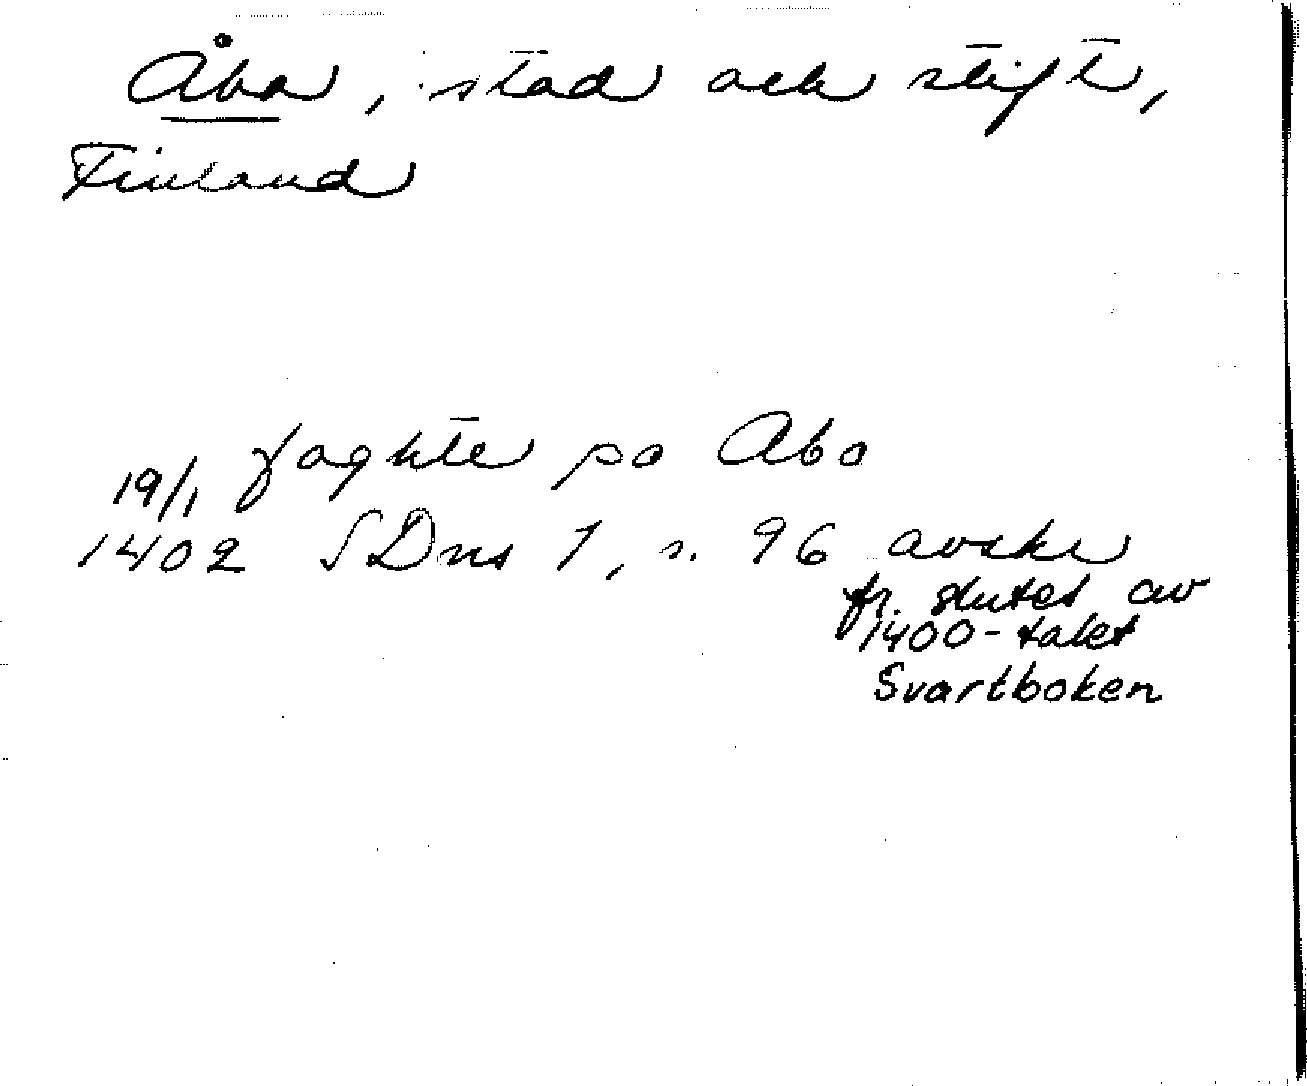 Åbo, stad och stift,
Finland
foghte po Abo
19/1
1402 SDns 1, s. 96 avskr
fr. slutet av
1400-talet
Svartboken